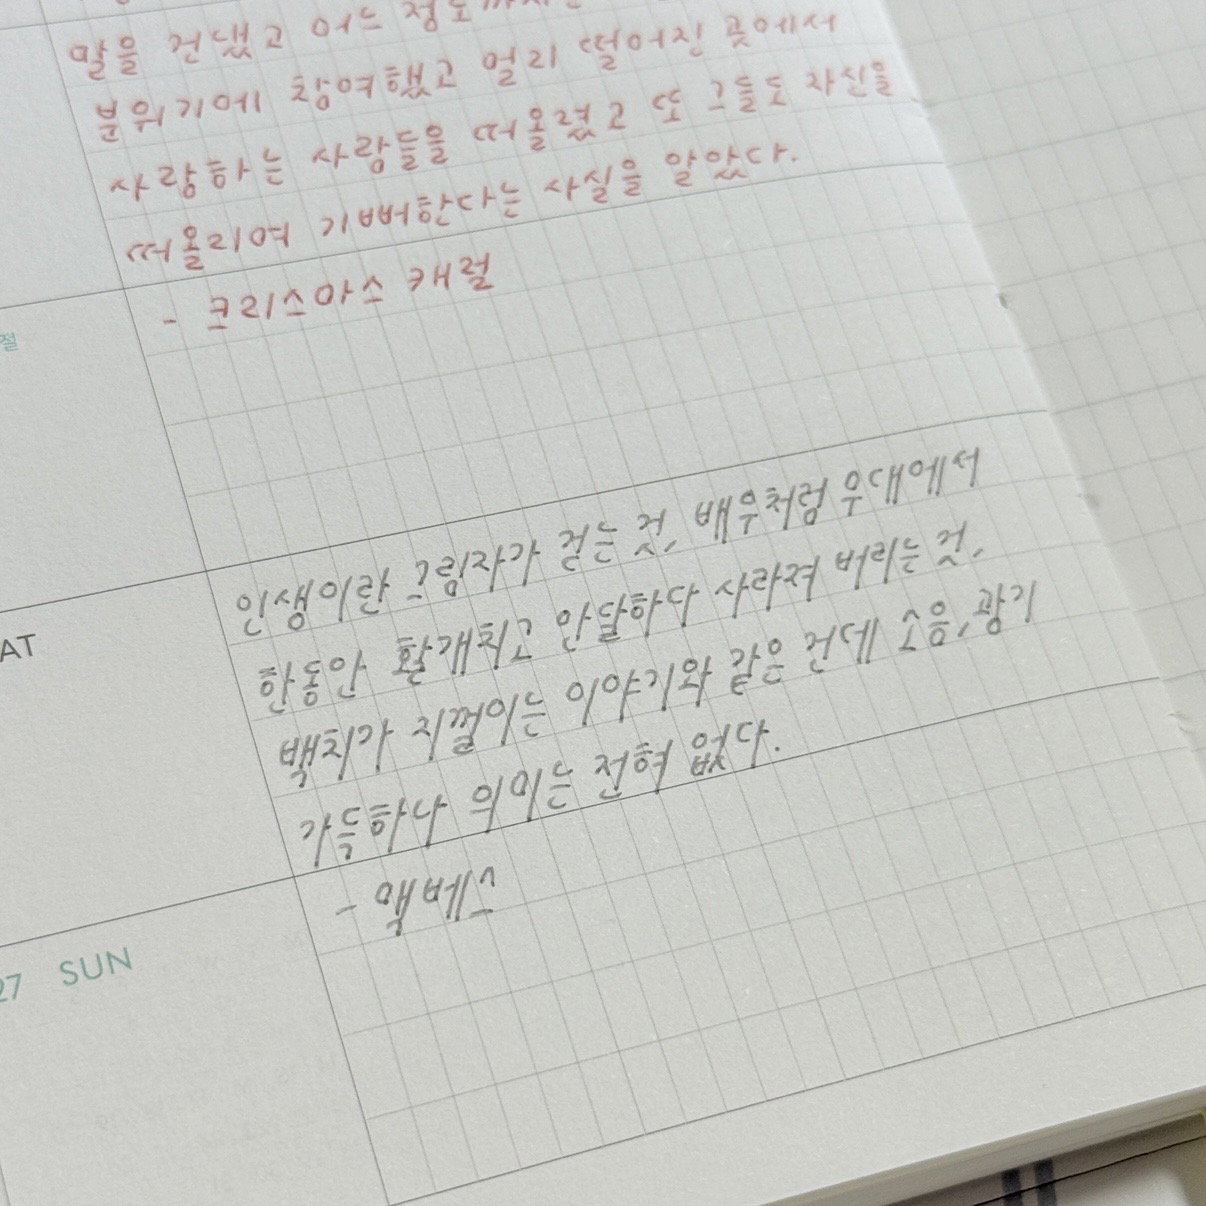 말을 건넸고 어느 정도
분위기에 참여했고 멀리 떨어진 곳에서
사랑하는 사람들을 떠올렸고 또 그들도 자신을
떠올리며 기뻐한다는 사실을 알았다.
- 크리스마스 캐럴
절
인생이란 그림자가 걷는 것, 배우처럼 무대에서
한동안 활개치고 안달하다 사라져 버리는 것,
백치가 지껄이는 이야기와 같은 건데 소음, 광기
AT
가득하나 의미는 전혀 없다.
- 맥베스
27 SUN